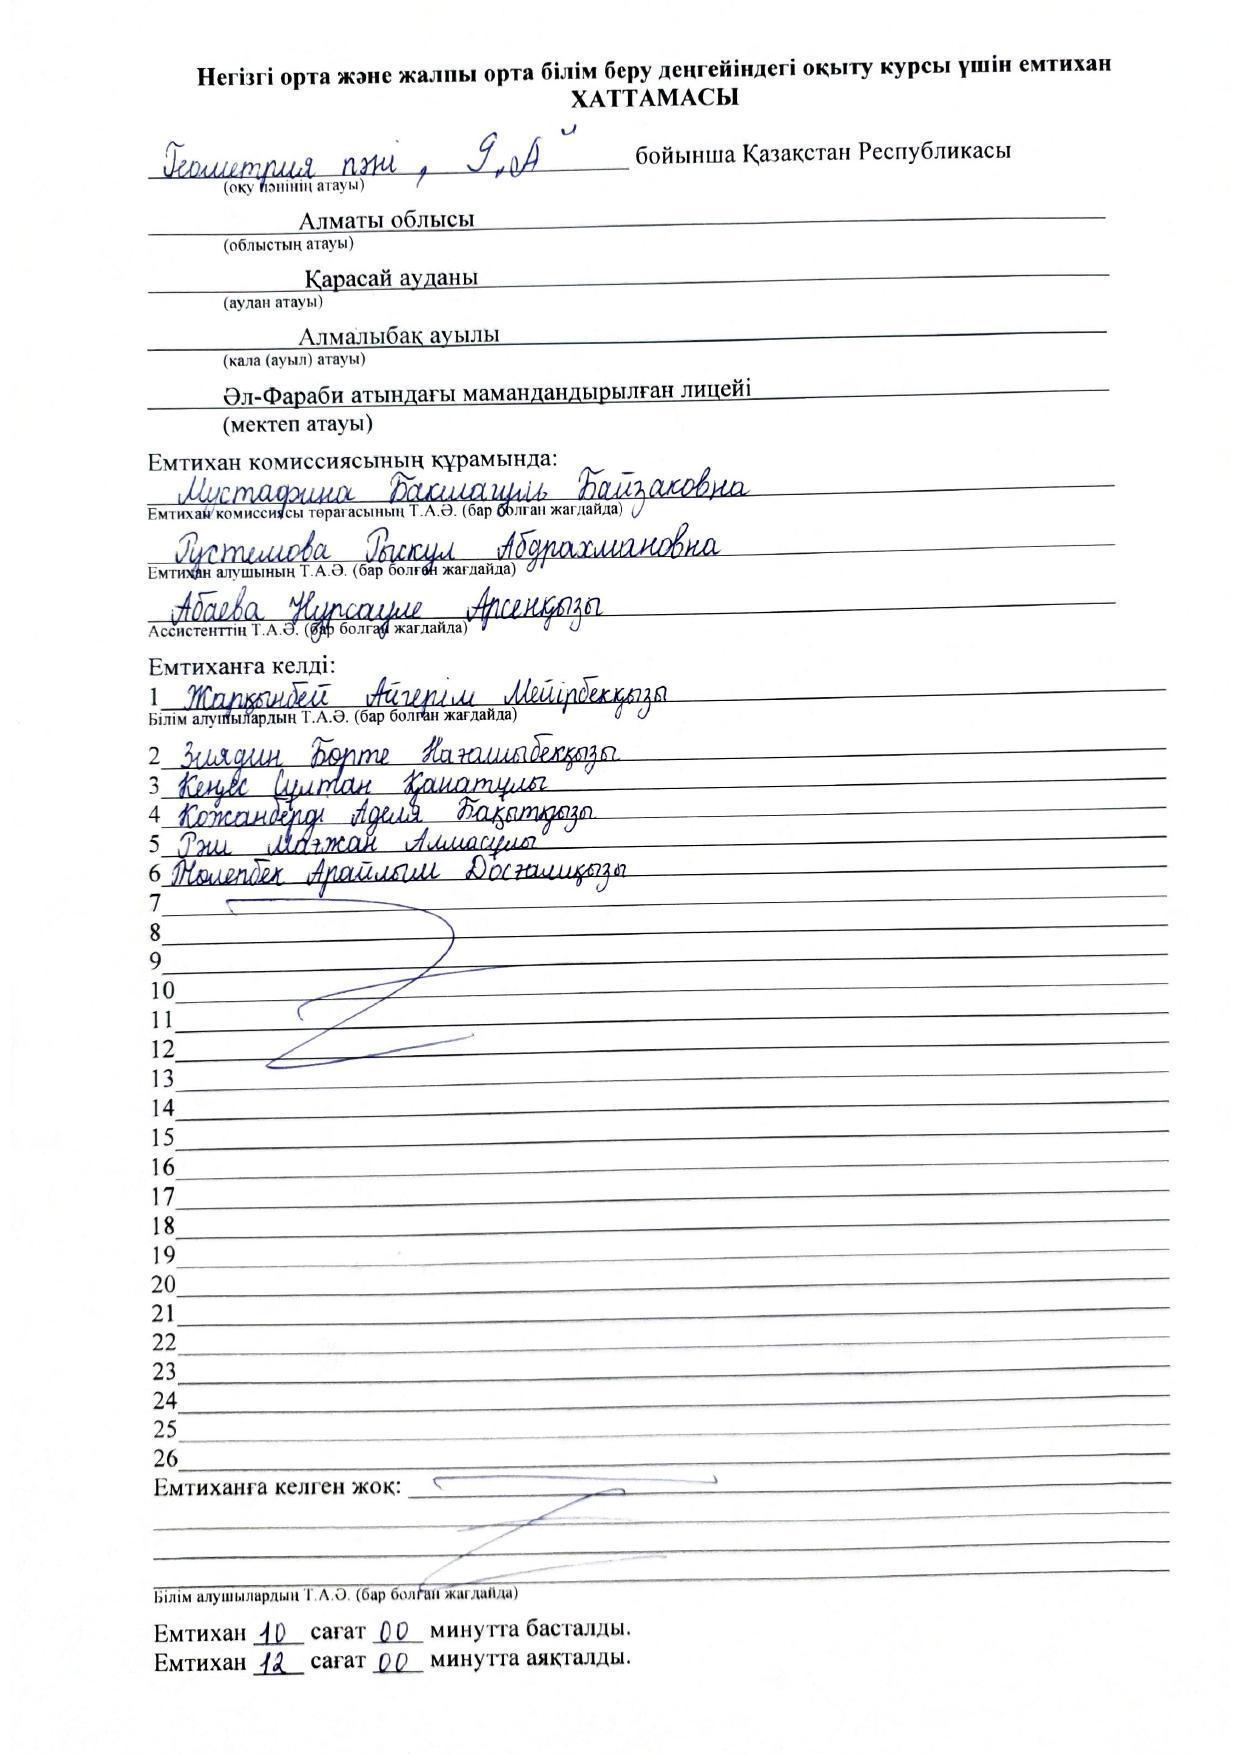 Негізгі орта және жалпы орта білім беру деңгейіндегі оқыту курсы үшін емтихан
ХАТТАМАСЫ
Геометрия пәні , 9 „А" бойынша Қазақстан Республикасы
(оқу пәнінің атауы)
Алматы облысы
(облыстың атауы)
Қарасай ауданы
(аулан атауы)
Алмалыбақ ауылы
(кала (ауыл) атауы)
Әл-Фараби атындағы мамандандырылған лицейі
(мектеп атауы)
Емтихан комиссиясының құрамында:
Мустафина Бакшагуль Байзаковна
Емтихан комиссиясы төрағасының Т.А.Ә. (бар болған жағдайда)
Рустемова Рыскул Абдрахмановна
Емтихан алушының Т.А.Ә. (бар болған жағдайда)
Абаева Нұрсауле Арсенқызы
Ассистенттің Т.А.Ә. (бар болған жағдайда)
Емтиханға келді:
1 Жарқынбей Айгерім Мейірбекқызы
Білім алушылардың Т.А.Ә. (бар болған жағдайда)
2 Зиядин Бөрте Нағашыбекқызы
3 Кеңес Сұлтан Қанатұлы
4 Кожанберді Аделя Бақытқызы
5 Рәш Мағжан Алмасұлы
6 Төлепбек Арайлым Досғалиқызы
7
8
9
10
11
12
13
14
15
16
17
18
19
20
21
22
23
24
25
26
Емтиханға келген жоқ:
Білім алушылардың Т.А.Ә. (бар болған жағдайда)
Емтихан 10 сағат 00 минутта басталды.
Емтихан 12 сағат 00 минутта аяқталды.